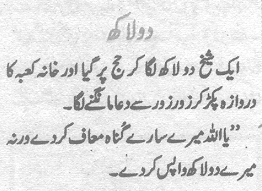 دو لاکھ
ایک شیخ دو لاکھ لگا کر حج پر گیا اور خانہ کعبہ کا
دروازہ پکڑ کر زور زور سے دعا مانگنے لگا۔
”یا اللہ میرے سارے گناہ معاف کر دے ورنہ
میرے دو لاکھ واپس کر دے۔